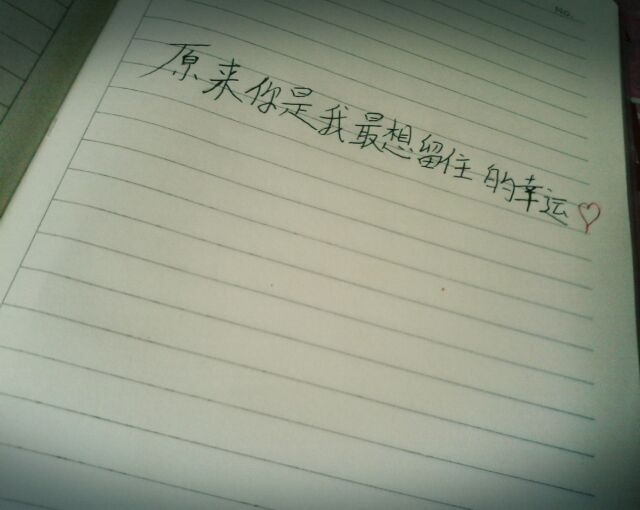 NO.
原来你是我最想留住的幸运♡